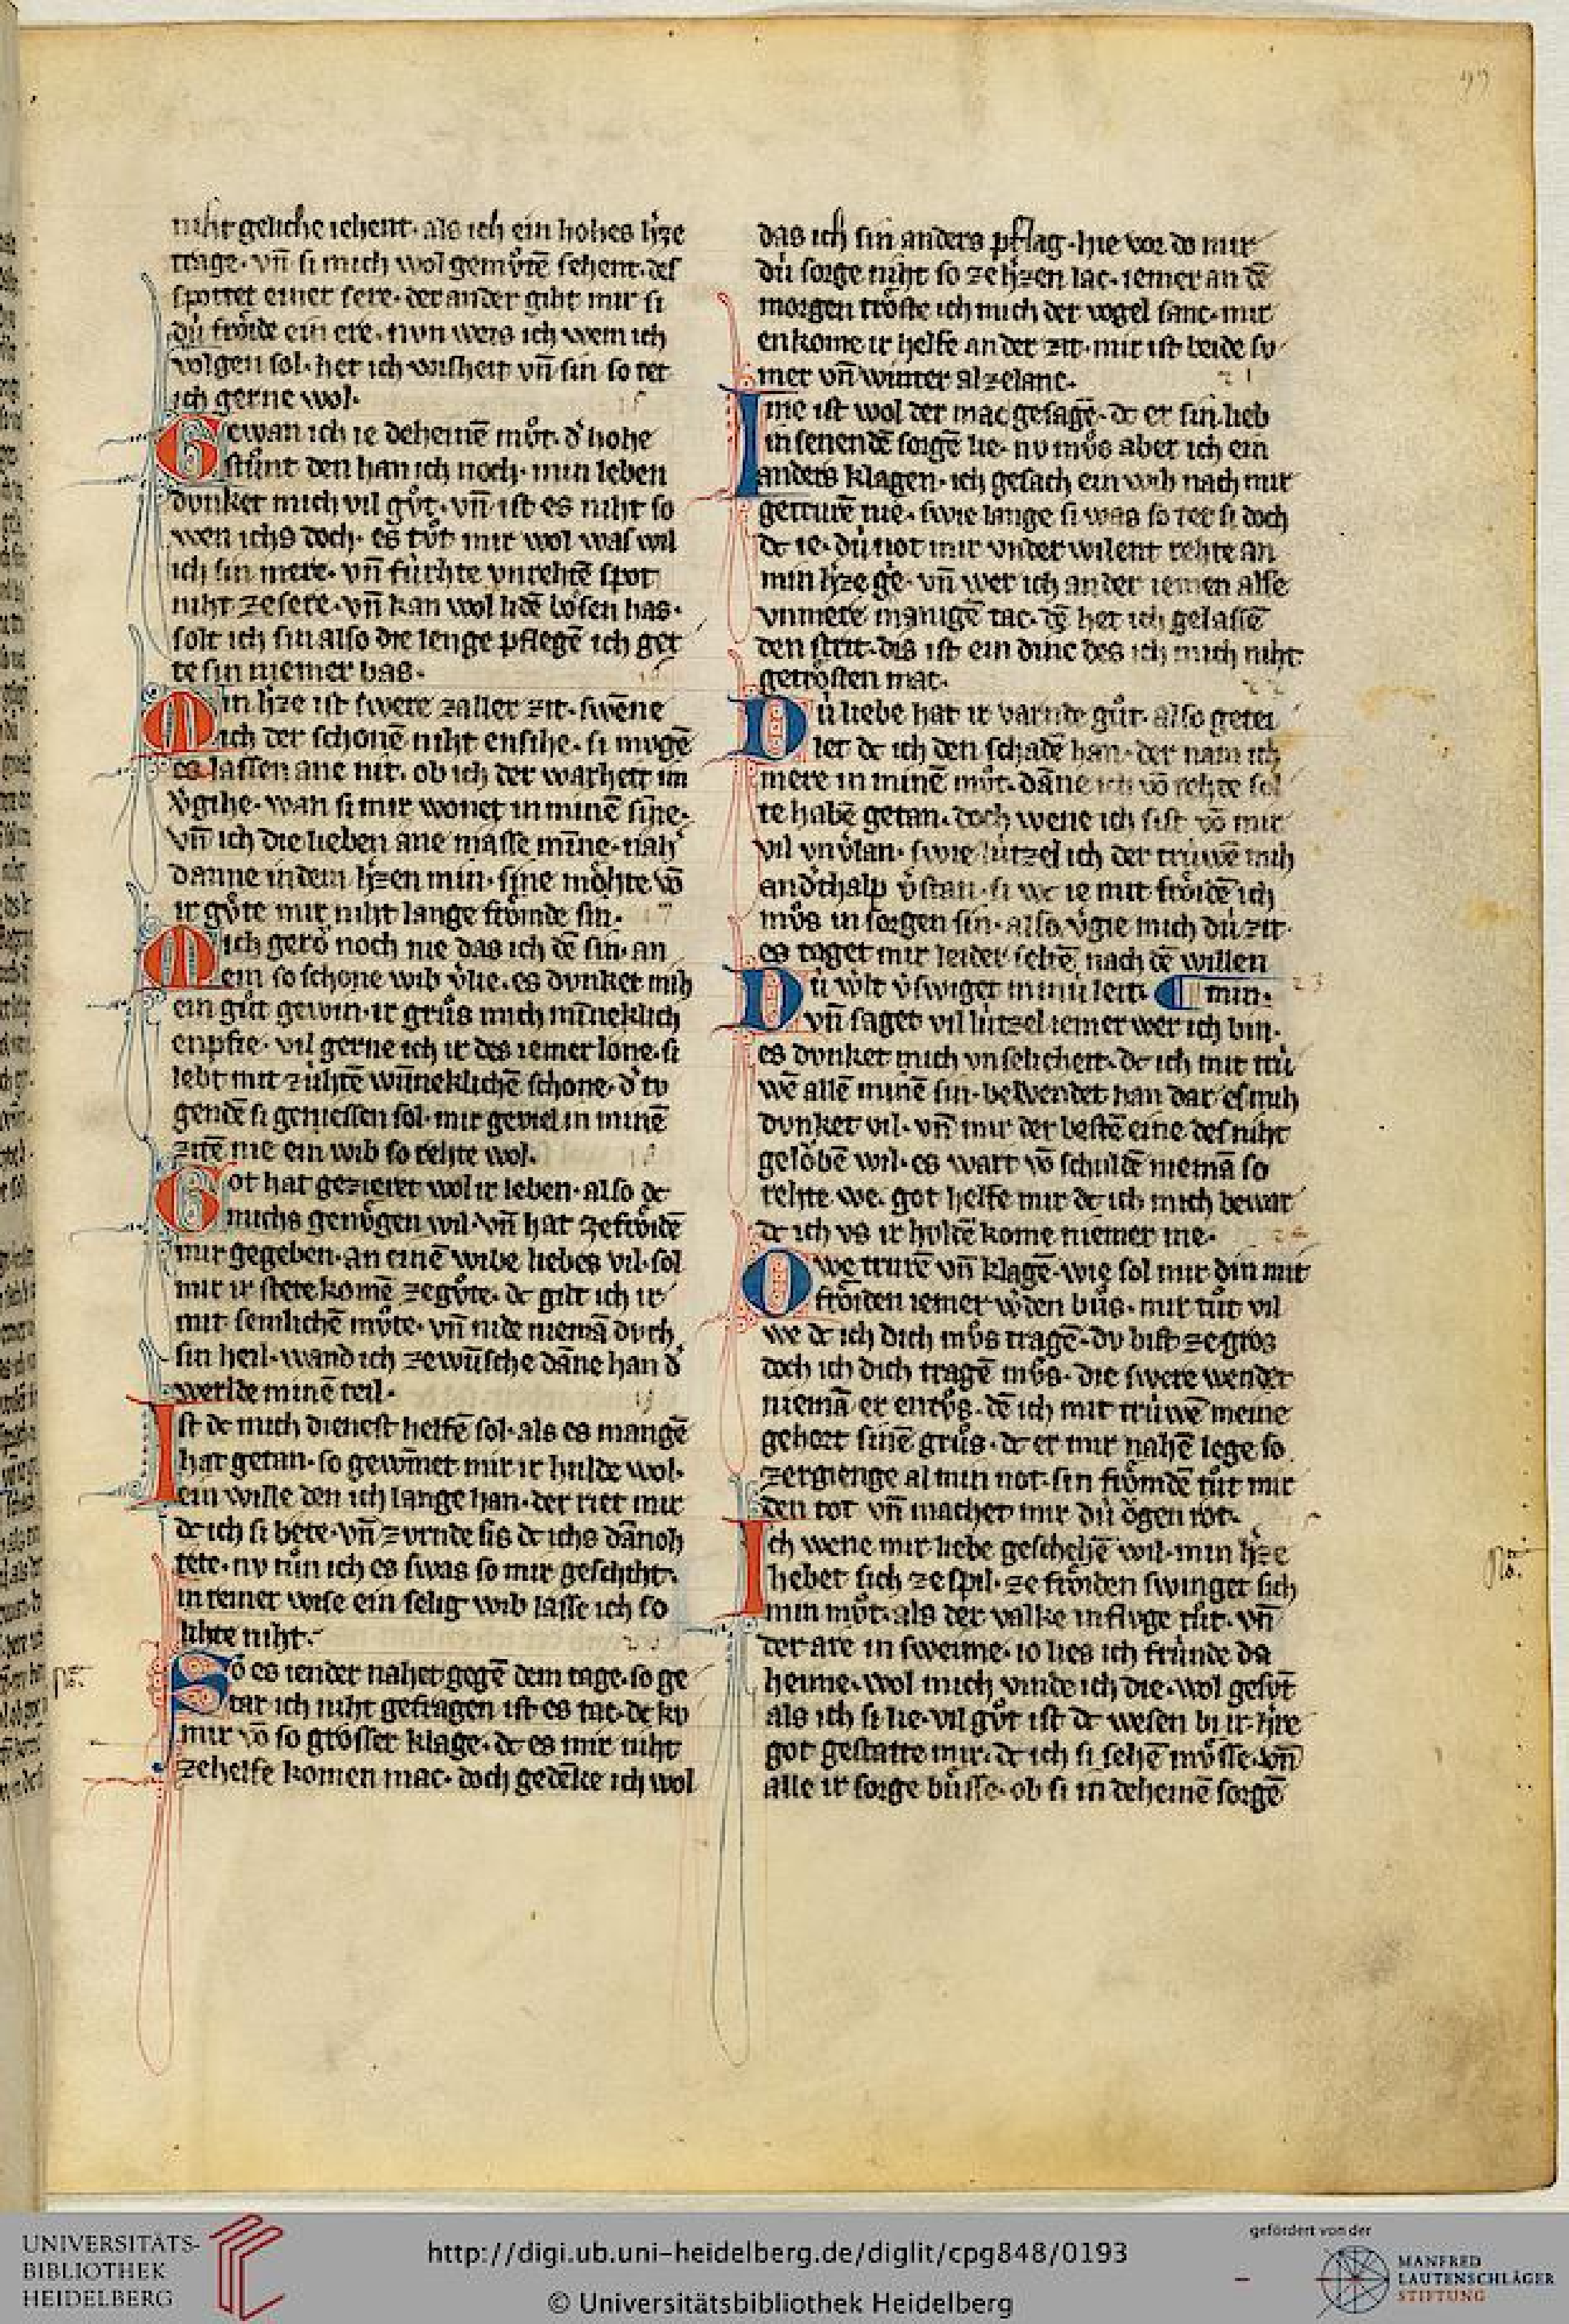 99
niht geliche iehent. als ich ein hohes h'ze
trage. vn̄ si mich wol gemv̊tē sehent. des
spottet einer sere. der ander giht mir si
dú frőide ein ere. nvn weis ich wem ich
volgen sol. het ich wisheit vn̄ sin so tet
ich gerne wol.
Gewan ich ie deheinē mv̊t. d' hohe
stůnt den han ich noch. min leben
dvnket mich vil gv̊t. vn̄ ist es niht so
wen ichs doch. es tv̊t mir wol was wil
ich sin mere. vn̄ fúrhte vnrehtē spot
niht ze sere. vn̄ kan wol lidē bősen has.
solt ich sin also die lenge pflegē ich ger
te sin niemer bas.
Min h'ze ist swere zaller zit. swēne
ich der schonē niht ensihe. si mvgē
es lassen ane nit. ob ich der warheit im
v'gihe. wan si mir wonet in minē sīne.
vn̄ ich die lieben ane masse mīne. nah'
danne in dem h'zen min. sīne mőhte vō
ir gv̊te mir niht lange frőmde sin.
Mich gerő noch nie das ich dē sin. an
ein so schone wib v'lie. es dvnket mih
ein gůt gewin. ir grůs mich mīneklich
enpfie. vil gerne ich ir des iemer lone. si
lebt mit zúhtē wūneklichē schone. d' tv
gendē si geniessen sol. mir geviel in minē
zitē nie ein wib so rehte wol.
Got hat gezieret wol ir leben. also dc
michs genv̊gen wil. vn̄ hat ze frőidē
mir gegeben. an einē wibe liebes vil. sol
mir ir stete komē ze gv̊te. dc gilt ich ir
mit semlichē mv̊te. vn̄ nide niemā dvrh
sin heil. wand ich ze wūsche dāne han d'
werlde minē teil.
Ist dc mich dienest helfē sol. als es mangē
hat getan. so gewīnet mir ir hulde wol.
ein wille den ich lange han. der riet mir
dc ich si bete. vn̄ zvrnde sis dc ichs dānoh
tete. nv tůn ich es swas so mir geschiht.
in reiner wise ein selig wib lasse ich so
lihte niht.
So es iender nahet gegē dem tage. so ge
tar ich niht gefragen ist es tac. dc kv
mir vō so grosser klage. dc es mir niht
ze helfe komen mac. doch gedēke ich wol
das ich sin anders pflag. hie vor do mir
dú sorge niht so ze h'zen lac. iemer an dē
morgen trőste ich mich der vogel sanc. mir
enkome ir helfe an der zit. mir ist beide sv
mer vn̄ winter al ze lanc.
Ime ist wol der mac gesagē. dc er sin lieb
in senendē sorgē lie. nv mv̊s aber ich ein
anders klagen. ich gesach ein wib nach mir
getrurē nie. swie lange si was so tet si doch
dc ie. dú not mir vnder wilent rehte an
min h'ze ge. vn̄ wer ich ander iemen alse
vnmere manigē tac. dē het ich gelassē
den strit. dis ist ein dinc des ich mich niht
getrősten mac.
Dú liebe hat ir varnde gůt. also getei
let dc ich den schadē han. der nam ich
mere in minē mv̊t. dāne ich vō rehte sol
te habē getan. doch wene ich sist vō mir
vil vnv'lan. swie lútzel ich der trúwē mih
andrthalp v'stan. si wc ie mit frőidē ich
mv̊s in sorgen sin. also v'gie mich dú zit.
es taget mir leider selte nach dē willen
min.
Dú w'lt v'swiget minú leit.
vn̄ saget vil lútzel iemer wer ich bin.
es dvnket mich vnselicheit. dc ich mit trú
wē allē minē sin. bewendet han dar es mih
dvnket vil. vn̄ mir der bestē eine des niht
gelőbē wil. es wart vō schuldē niemā so
rehte we. got helfe mir dc ich mich bewar
dc ich vs ir huldē kome niemer me.
Owe trurē vn̄ klagē. wie sol mir din mit
frőiden iemer w'den bůs. mir tůt vil
we dc ich dich mv̊s tragē. dv bist ze gros
doch ich dich tragē mv̊s. die swere wendet
niemā er entv̊s. dē ich mit trúwē meine
gehort sinē grůs. dc er mir nahē lege so
zergienge al min not. sin frőmdē tůt mir
den tot vn̄ machet mir dú őgen rot.
Ich wene mir liebe geschehē wil. min h'ze
hebet sich ze spil. ze frőiden swinget sich
min mv̊t. als der valke in flvge tůt. vn̄
der are in sweime. io lies ich frúnde da
heime. wol mich vinde ich die. wol gesvt̄
als ich si lie. vil gv̊t ist dc wesen bi ir. h're
got gestatte mir. dc ich si sehē mv̊sse. vn̄
alle ir sorge bůsse. ob si in deheinē sorgē
UNIVERSITÄTS-
BIBLIOTHEK
HEIDELBERG
http://digi.ub.uni-heidelberg.de/diglit/cpg848/0193
© Universitätsbibliothek Heidelberg
gefördert von der
MANFRED
LAUTENSCHLÄGER
STIFTUNG